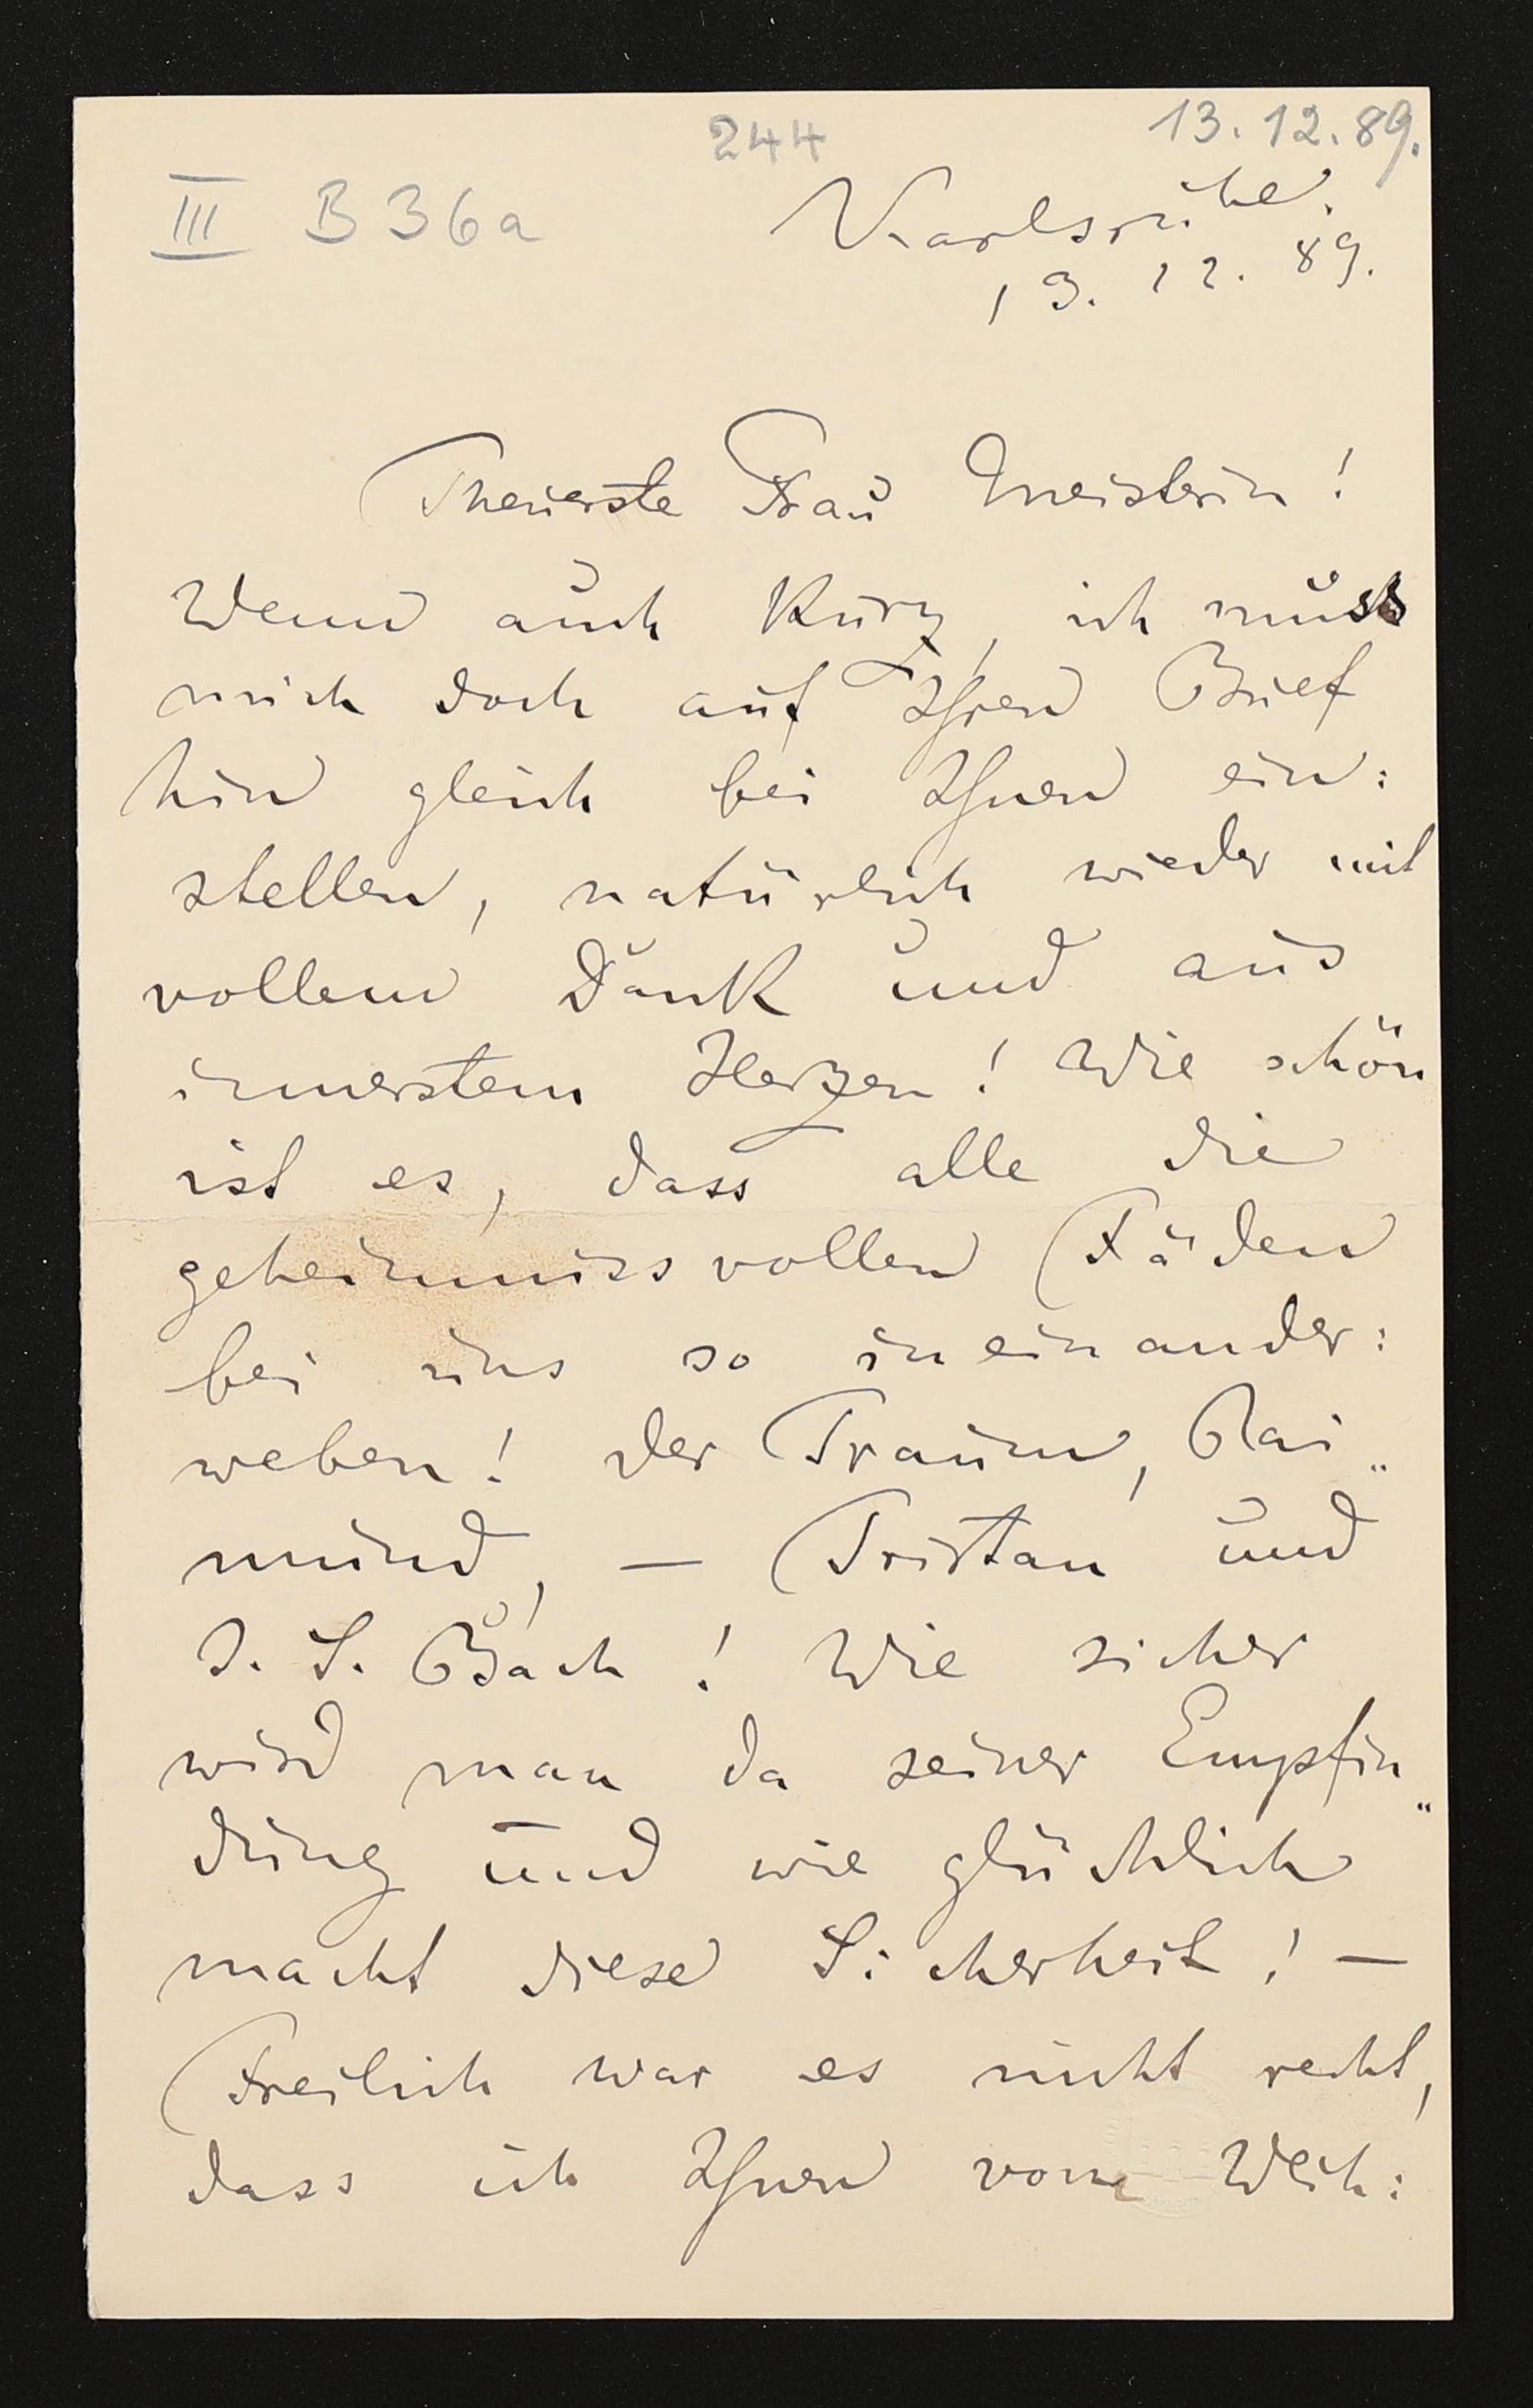 244
13.12.89.
III B 36a
Karlsruhe.
13. 12. 89.
Theuerste Frau Meisterin!
Wenn auch kurz, ich muss
mich doch auf Ihren Brief
hin gleich bei Ihnen ein:
stellen, natürlich wieder mit
vollem Dank und aus
innerstem Herzen! Wie schön
ist es, dass alle die
geheimnissvollen Fäden
bei uns so ineinander:
weben! Der Traum, Rai„
mund, — Tristan und
J. S. Bach! Wie sicher
wird man da seiner Empfin„
dung und wie glücklich
macht diese Sicherheit! —
Freilich war es nicht recht,
dass ich Ihnen vom Weih: